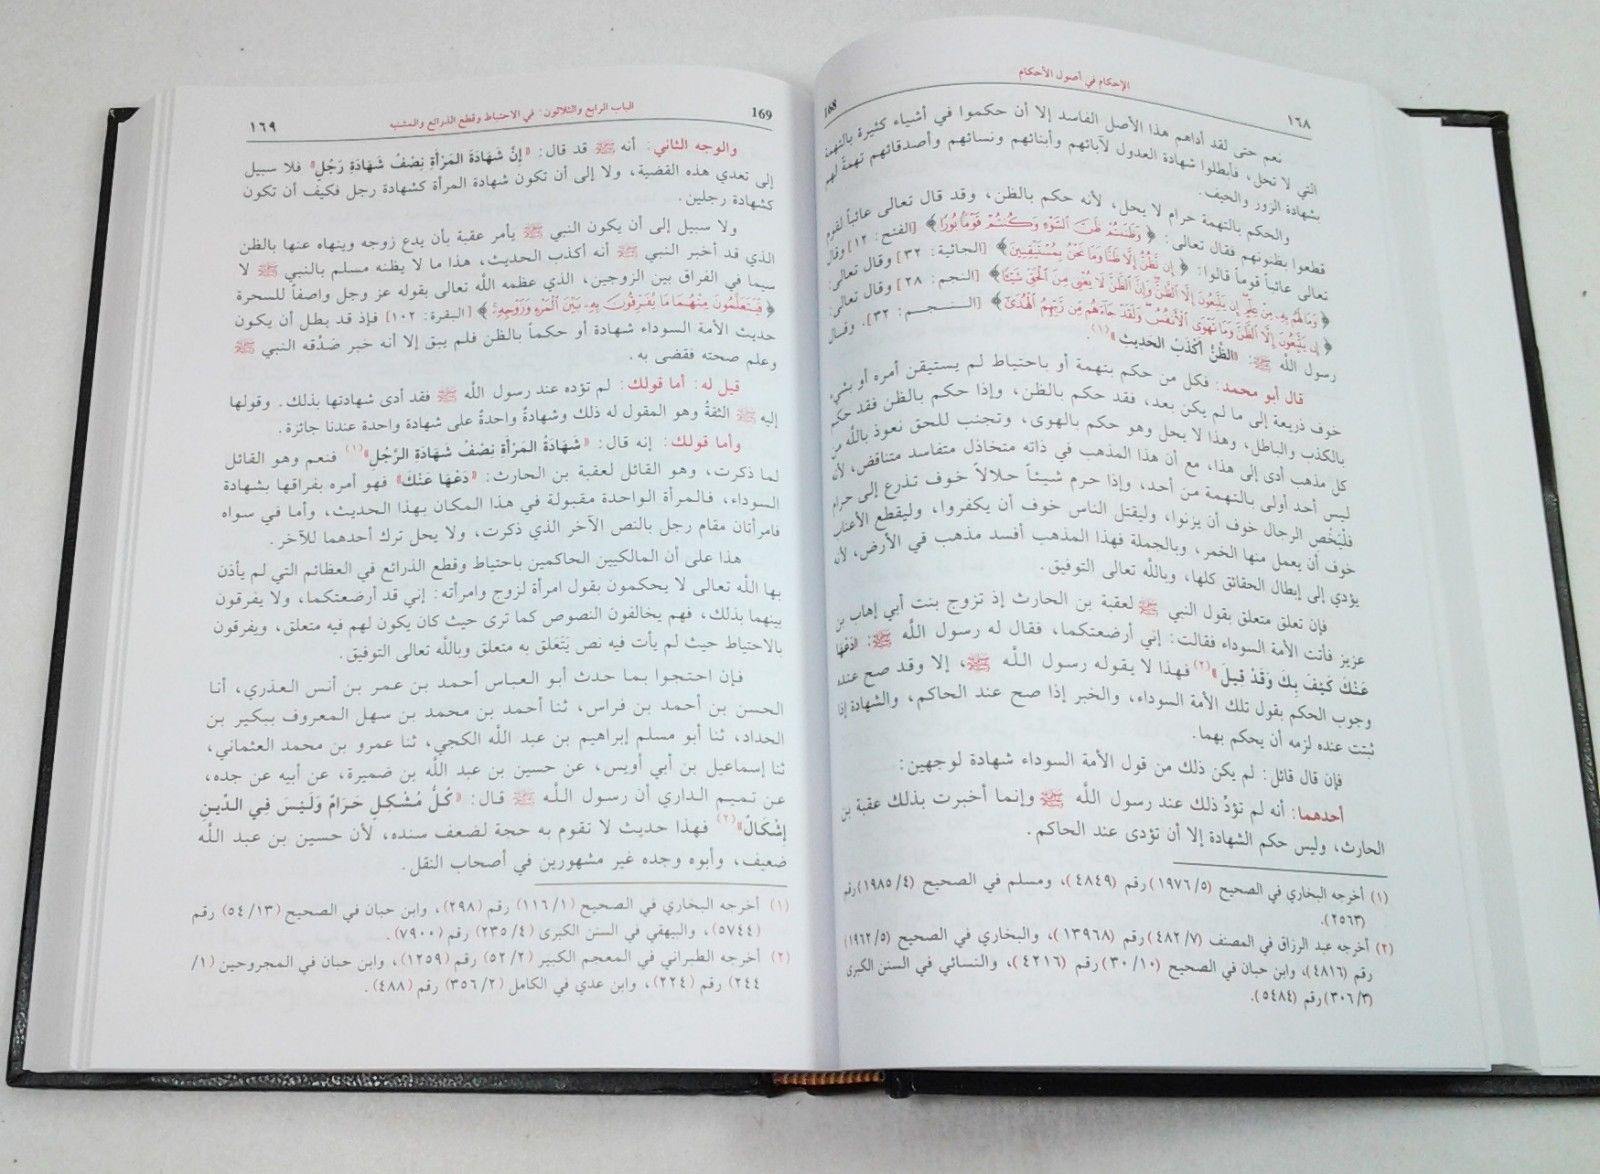 ١٦٨
الإحكام في أصول الأحكام
168
نعم حتى لقد أداهم هذا الأصل الفاسد إلا أن حكموا في أشياء كثيرة بالتهمة
التي لا تحل، فأبطلوا شهادة العدول لآبائهم وأبنائهم ونسائهم وأصدقائهم تهمةً لهم
بشهادة الزور والحيف.
والحكم بالتهمة حرام لا يحل، لأنه حكم بالظن، وقد قال تعالى عائباً لقوم
قطعوا بظنونهم فقال تعالى: ﴿وَظَنَنتُمْ ظَنَّ ٱلسَّوْءِ وَكُنتُمْ قَوْمًا بُورًا﴾ [الفتح: ١٢] وقال
تعالى عائباً قوماً قالوا: ﴿إِن نَّظُنُّ إِلَّا ظَنًّا وَمَا نَحْنُ بِمُسْتَيْقِنِينَ﴾ [الجاثية: ٣٢] وقال تعالى:
﴿وَمَا لَهُم بِهِۦ مِنْ عِلْمٍ إِن يَتَّبِعُونَ إِلَّا ٱلظَّنَّ وَإِنَّ ٱلظَّنَّ لَا يُغْنِى مِنَ ٱلْحَقِّ شَيْـًٔا﴾ [النجم: ٢٨] وقال تعالى:
﴿إِن يَتَّبِعُونَ إِلَّا ٱلظَّنَّ وَمَا تَهْوَى ٱلْأَنفُسُ وَلَقَدْ جَآءَهُم مِّن رَّبِّهِمُ ٱلْهُدَىٰ﴾ [النجم: ٣٢]. وقال
رسول الله ﷺ: «الظَّنُّ أَكْذَبُ الحَدِيث»(١).
قال أبو محمد: فكل من حكم بتهمة أو باحتياط لم يستيقن أمره أو بشيء
خوف ذريعة إلى ما لم يكن بعد، فقد حكم بالظن، وإذا حكم بالظن فقد حكم
بالكذب والباطل، وهذا لا يحل وهو حكم بالهوى، وتجنب للحق نعوذ بالله من
كل مذهب أدى إلى هذا، مع أن هذا المذهب في ذاته متخاذل متفاسد متناقض، لأن
ليس أحد أولى بالتهمة من أحد، وإذا حرم شيئاً حلالاً خوف تذرع إلى حرام
فلْيَخْصِ الرجال خوف أن يزنوا، وليقتل الناس خوف أن يكفروا، وليقطع الأعناب
خوف أن يعمل منها الخمر، وبالجملة فهذا المذهب أفسد مذهب في الأرض، لأن
يؤدي إلى إبطال الحقائق كلها، وبالله تعالى التوفيق.
فإن تعلق متعلق بقول النبي ﷺ لعقبة بن الحارث إذ تزوج بنت أبي إهاب بن
عزيز فأتت الأمة السوداء فقالت: إني أرضعتكما، فقال له رسول الله ﷺ: «دَعْهَا
عَنْكَ كَيْفَ بِكَ وَقَدْ قِيلَ»(٢) فهذا لا يقوله رسول الله ﷺ، إلا وقد صح عنده
وجوب الحكم بقول تلك الأمة السوداء، والخبر إذا صح عند الحاكم، والشهادة إذا
ثبتت عنده لزمه أن يحكم بهما.
فإن قال قائل: لم يكن ذلك من قول الأمة السوداء شهادة لوجهين:
أحدهما: أنه لم تؤدِّ ذلك عند رسول الله ﷺ وإنما أخبرت بذلك عقبة بن
الحارث، وليس حكم الشهادة إلا أن تؤدى عند الحاكم.
(١) أخرجه البخاري في الصحيح (١٩٧٦/٥) رقم (٤٨٤٩)، ومسلم في الصحيح (١٩٨٥/٤) رقم
(٢٥٦٣).
(٢) أخرجه عبد الرزاق في المصنف (٤٨٢/٧) رقم (١٣٩٦٨)، والبخاري في الصحيح (١٩٦٢/٥)
رقم (٤٨١٦)، وابن حبان في الصحيح (٣٠/١٠) رقم (٤٢١٦)، والنسائي في السنن الكبرى
(٣٠٦/٣) رقم (٥٤٨٤).
169
الباب الرابع والثلاثون: في الاحتياط وقطع الذرائع والمشتبه
١٦٩
والوجه الثاني: أنه ﷺ قد قال: «إنَّ شَهَادَةَ المَرْأَةِ نِصْفُ شَهَادَةِ رَجُلٍ» فلا سبيل
إلى تعدي هذه القضية، ولا إلى أن تكون شهادة المرأة كشهادة رجل فكيف أن تكون
كشهادة رجلين.
ولا سبيل إلى أن يكون النبي ﷺ يأمر عقبة بأن يدع زوجه وينهاه عنها بالظن
الذي قد أخبر النبي ﷺ أنه أكذب الحديث، هذا ما لا يظنه مسلم بالنبي ﷺ لا
سيما في الفراق بين الزوجين، الذي عظمه الله تعالى بقوله عز وجل واصفاً للسحرة
﴿فَيَتَعَلَّمُونَ مِنْهُمَا مَا يُفَرِّقُونَ بِهِۦ بَيْنَ ٱلْمَرْءِ وَزَوْجِهِۦ﴾ [البقرة: ١٠٢] فإذ قد بطل أن يكون
حديث الأمة السوداء شهادة أو حكماً بالظن فلم يبق إلا أنه خبر صَدَّقه النبي ﷺ
وعلم صحته فقضى به.
قيل له: أما قولك: لم تؤده عند رسول الله ﷺ فقد أدى شهادتها بذلك. وقولها
إليه ﷺ الثقةُ وهو المقول له ذلك وشهادةُ واحدةٌ على شهادة واحدة عندنا جائزة.
وأما قولك: إنه قال: «شَهَادَةُ المَرْأَةِ نِصْفُ شَهَادَةِ الرَّجُلِ»(١) فنعم وهو القائل
لما ذكرت، وهو القائل لعقبة بن الحارث: «دَعْهَا عَنْكَ» فهو أمره بفراقها بشهادة
السوداء، فالمرأة الواحدة مقبولة في هذا المكان بهذا الحديث، وأما في سواه
فامرأتان مقام رجل بالنص الآخر الذي ذكرت، ولا يحل ترك أحدهما للآخر.
هذا على أن المالكيين الحاكمين باحتياط وقطع الذرائع في العظائم التي لم يأذن
بها الله تعالى لا يحكمون بقول امرأة لزوج وامرأته: إني قد أرضعتكما، ولا يفرقون
بينهما بذلك، فهم يخالفون النصوص كما ترى حيث كان يكون لهم فيه متعلق، ويفرقون
بالاحتياط حيث لم يأت فيه نص يَتَعَلق به متعلق وبالله تعالى التوفيق.
فإن احتجوا بما حدث أبو العباس أحمد بن عمر بن أنس العذري، أنا
الحسن بن أحمد بن فراس، ثنا أحمد بن محمد بن سهل المعروف ببكير بن
الحداد، ثنا أبو مسلم إبراهيم بن عبد الله الكجي، ثنا عمرو بن محمد العثماني،
ثنا إسماعيل بن أبي أويس، عن حسين بن عبد الله بن ضميرة، عن أبيه عن جده،
عن تميم الداري أن رسول الله ﷺ قال: «كُلُّ مُشْكِلٍ حَرَامٌ وَلَيْسَ فِي الدِّينِ
إِشْكَالٌ»(٢) فهذا حديث لا تقوم به حجة لضعف سنده، لأن حسين بن عبد الله
ضعيف، وأبوه وجده غير مشهورين في أصحاب النقل.
(١) أخرجه البخاري في الصحيح (١١٦/١) رقم (٢٩٨)، وابن حبان في الصحيح (٥٤/١٣) رقم
(٥٧٤٤)، والبيهقي في السنن الكبرى (٢٣٥/٤) رقم (٧٩٠٠).
(٢) أخرجه الطبراني في المعجم الكبير (٥٢/٢) رقم (١٢٥٩)، وابن حبان في المجروحين (١/
٢٤٤) رقم (٢٢٤)، وابن عدي في الكامل (٣٥٦/٢) رقم (٤٨٨).